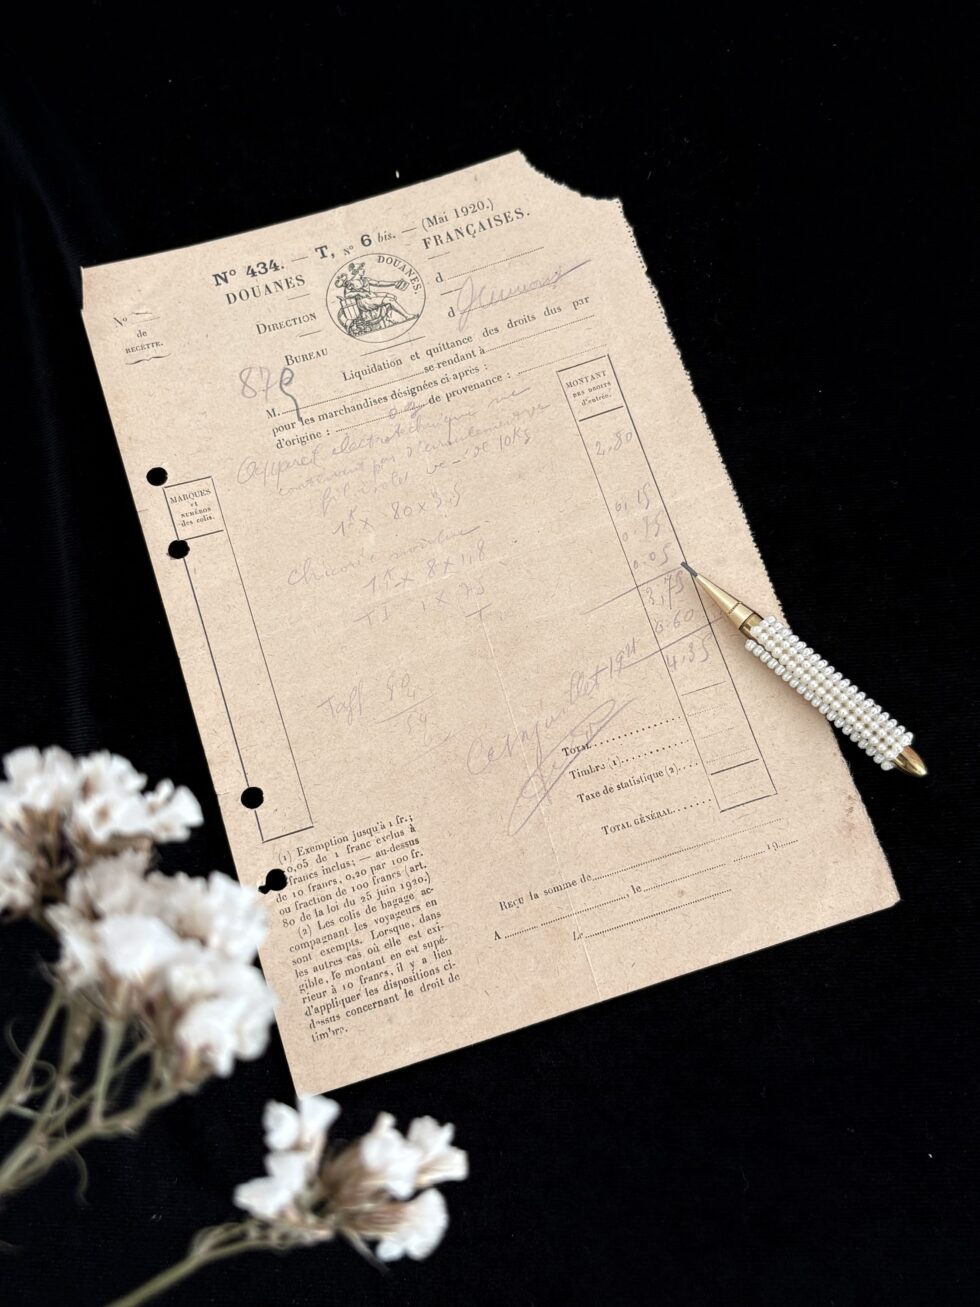 Nº 434. — T, Nº 6 bis. — (Mai 1920.)
DOUANES FRANÇAISES.
DOUANES.
Nº
de
RECETTE.
DIRECTION d
BUREAU d
879
Liquidation et quittance des droits dus par
M. se rendant à
pour les marchandises désignées ci après :
d'origine : de provenance :
MONTANT
DES DROITS
d'entrée.
Appareil électrotechnique ne
contenant pas d'enroulement
fil isolé de 10Kg
1K x 80 x 3,5
2,80
MARQUES
et
NUMÉROS
des colis.
chicorée moulue
1K x 8 x 1,8
0,15
T I 1 x 75
0,75
0.05
3,75
0.60
4.35
Taff
Cet
TOTAL
Timbre (1)
Taxe de statistique (2)
TOTAL GÉNÉRAL
(1) Exemption jusqu'à 1 fr.;
0,05 de 1 franc exclus à
francs inclus; — au-dessus
de 10 francs, 0,20 par 100 fr.
ou fraction de 100 francs (art.
80 de la loi du 25 juin 1920.)
(2) Les colis de bagage ac-
compagnant les voyageurs en
sont exempts. Lorsque, dans
les autres cas où elle est exi-
gible, le montant en est supé-
rieur à 10 francs, il y a lieu
d'appliquer les dispositions ci-
dessus concernant le droit de
timbre.
REÇU la somme de
A , le 19
LE